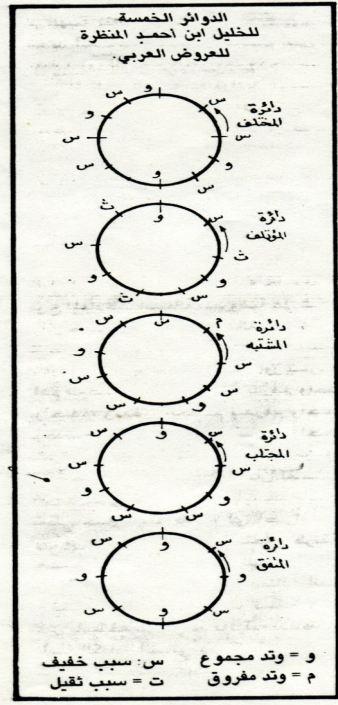 الدوائر الخمسة
للخليل ابن احمد المنظرة
للعروض العربي.
دائرة
المختلف
و
س
س
س
و
س
و
س
س
و
س
دائرة
المؤتلف
و
س
ث
س
ث
و
س
ت
و
دائرة
المشتبه
س
م
س
س
و
س
س
و
س
س
دائرة
المجتلب
و
س
س
و
س
س
و
س
س
دائرة
المتفق
و
س
و
س
و
س
و
س
و = وتد مجموع
س: سبب خفيف
م = وتد مفروق
ت = سبب ثقيل